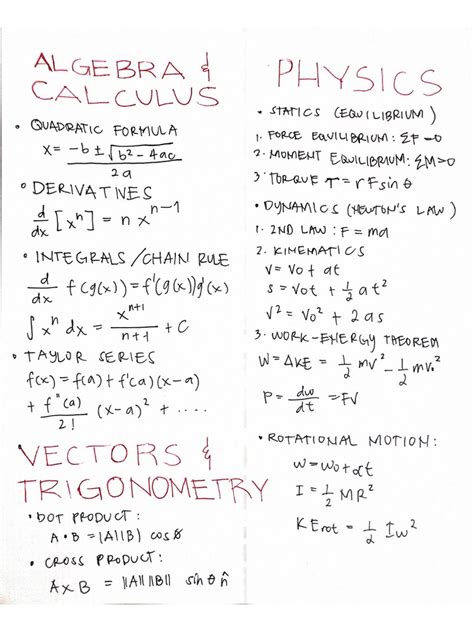 ALGEBRA &
CALCULUS
• QUADRATIC FORMULA
x = -b ± √b² - 4ac
2a
• DERIVATIVES
d/dx [xⁿ] = n xⁿ⁻¹
• INTEGRALS / CHAIN RULE
d/dx f(g(x)) = f'(g(x))g'(x)
∫ xⁿ dx = xⁿ⁺¹/n+1 + C
• TAYLOR SERIES
f(x) = f(a) + f'(a)(x-a)
+ f"(a)/2! (x-a)² + ....
VECTORS &
TRIGONOMETRY
• DOT PRODUCT:
A · B = |A||B| cos θ
• CROSS PRODUCT:
A x B = ||A||B|| sin θ n̂
PHYSICS
• STATICS (EQUILIBRIUM)
1. FORCE EQUILIBRIUM: ΣF=0
2. MOMENT EQUILIBRIUM: ΣM=0
3. TORQUE τ = r F sin θ
• DYNAMICS (NEWTON'S LAW)
1. 2ND LAW: F = ma
2. KINEMATICS
v = v₀ + at
s = v₀t + 1/2 at²
v² = v₀² + 2as
3. WORK-ENERGY THEOREM
W = ΔKE = 1/2 mv² - 1/2 mv₀²
P = dw/dt = FV
• ROTATIONAL MOTION:
ω = ω₀ + αt
I = 1/2 MR²
KErot = 1/2 Iω²